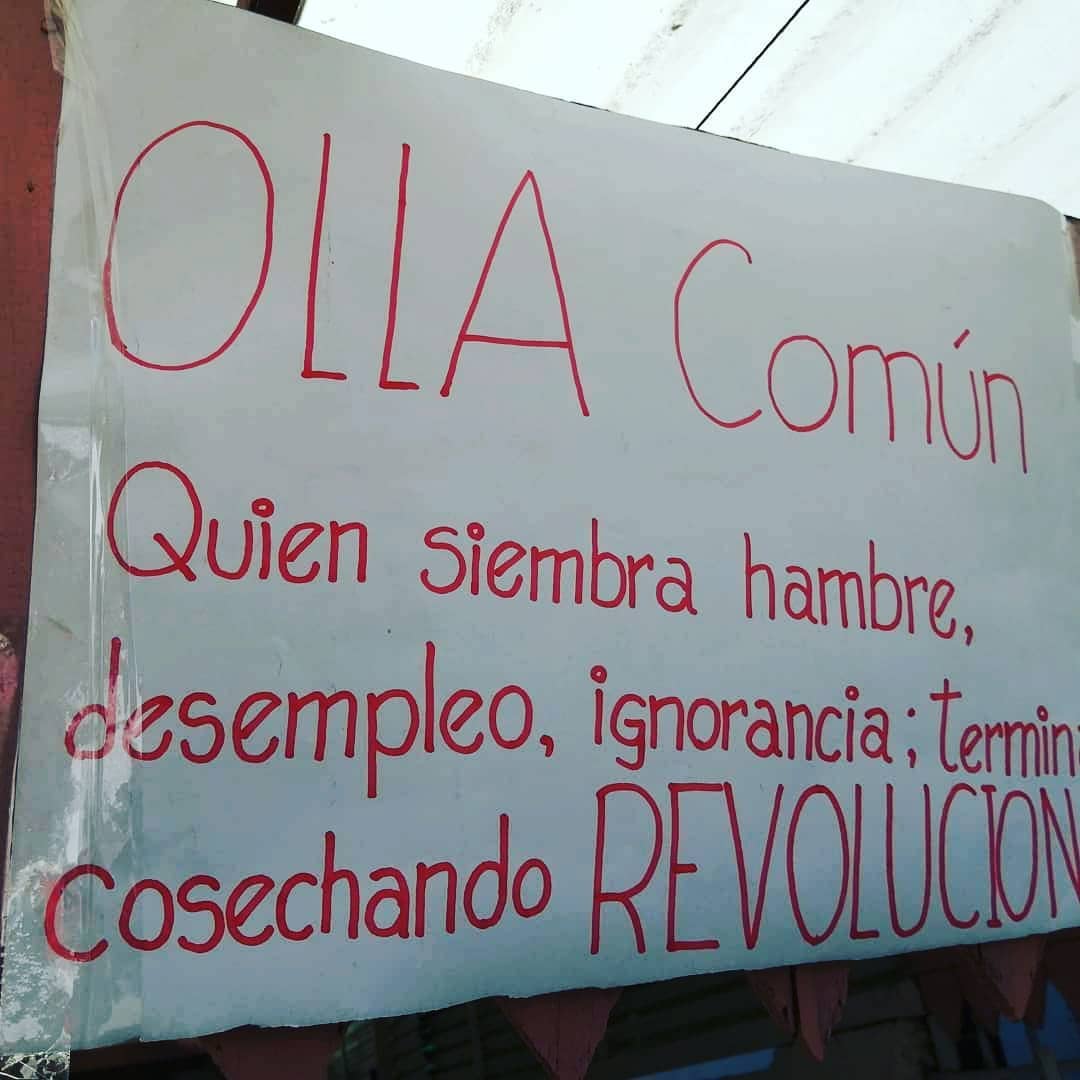 OLLA Común
Quien siembra hambre,
desempleo, ignorancia; termin
cosechando REVOLUCION